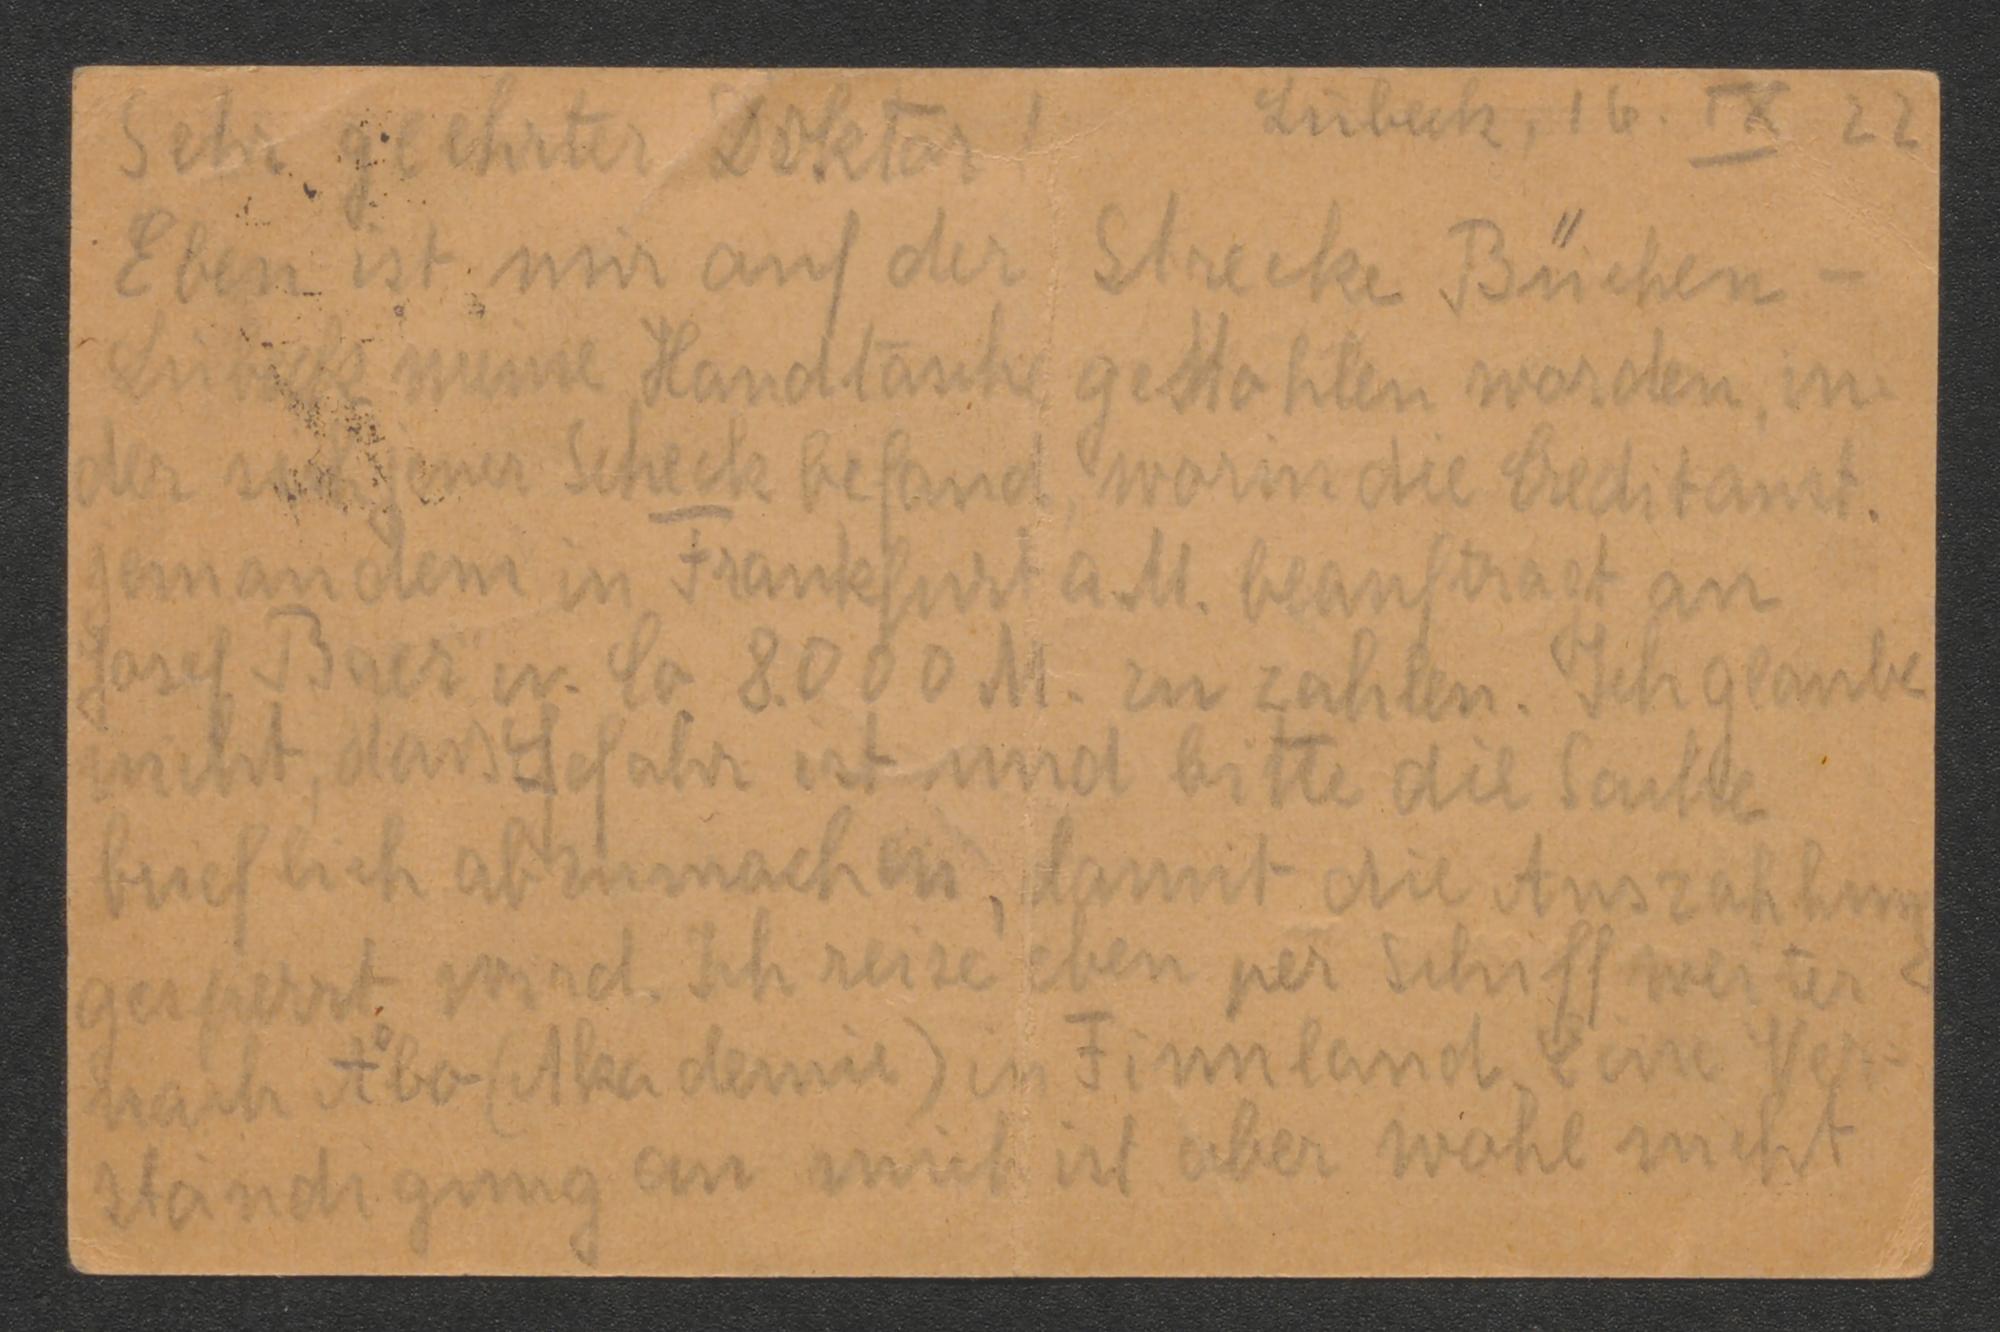 Sehr geehrter Doktor! Lübeck, 16. IX 22
Eben ist mir auf der Strecke Büchen –
Lübeck meine Handtasche gestohlen worden, in
der sich jener Scheck befand, worin die Creditanst.
jemandem in Frankfurt a. M. beauftragt an
Josef Baer u. Co 8.000 M. zu zahlen. Ich glaube
nicht, dass Gefahr ist und bitte die Sache
brieflich abzumachen, damit die Auszahlung
gesperrt wird. Ich reise eben per Schiff weiter
nach Åbo (Akademie) in Finnland. Eine Ver-
ständigung an mich ist aber wohl nicht